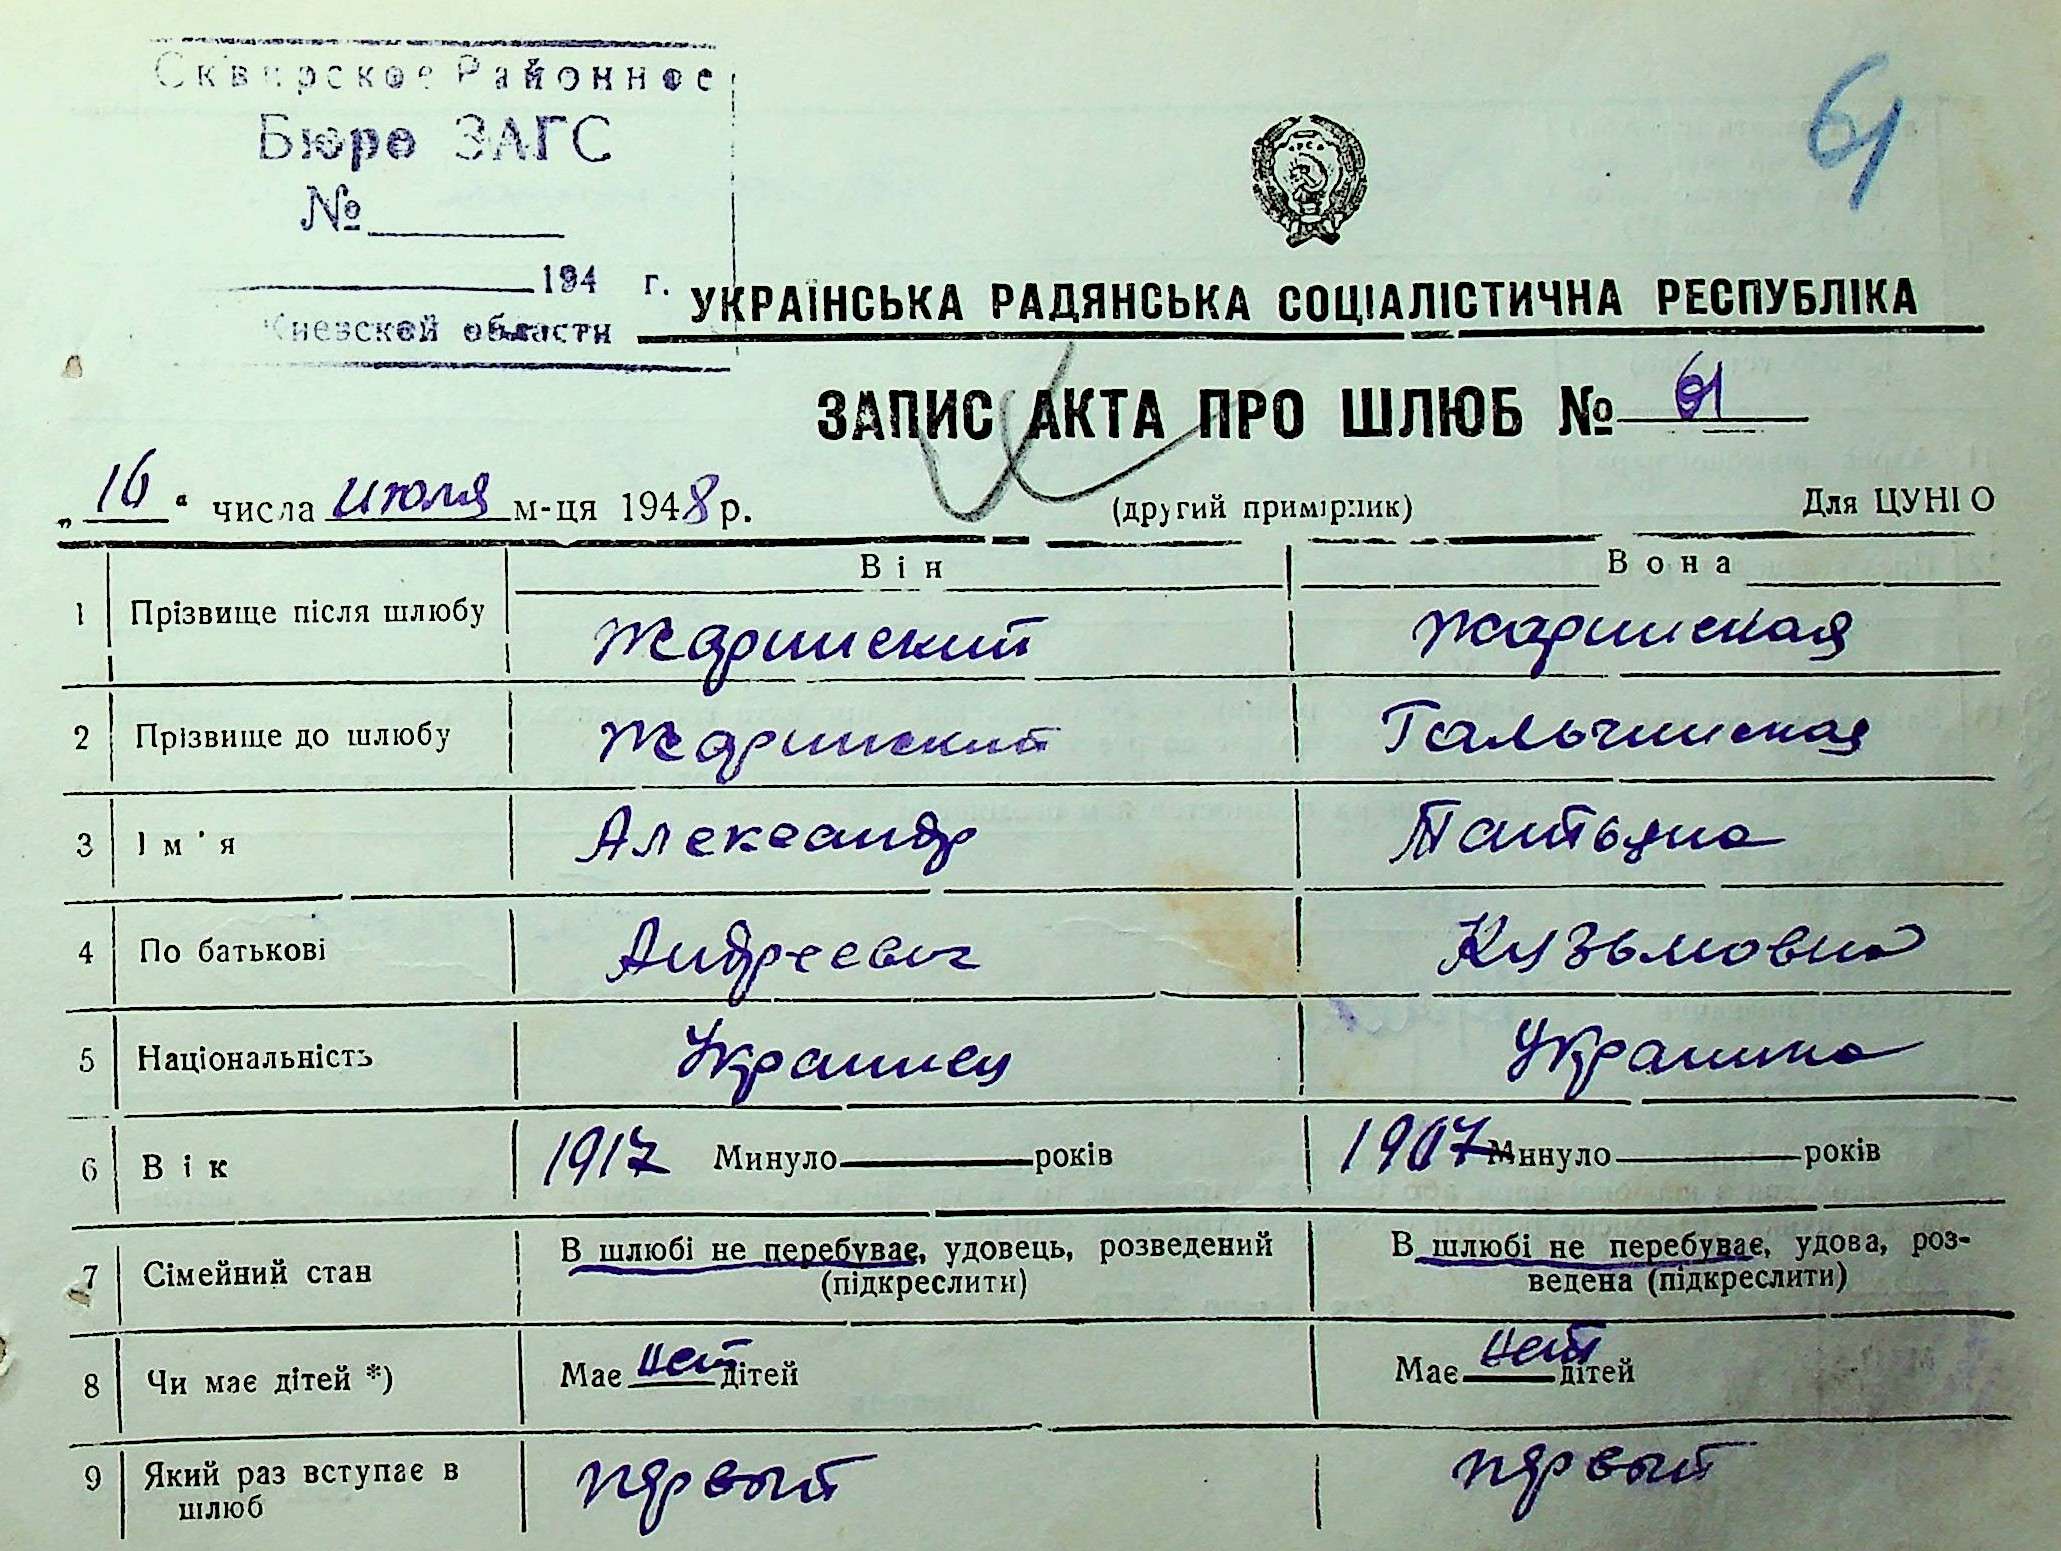 Сквирское Районное
Бюро ЗАГС
№
194 г.
Киевской области
61
УКРАЇНСЬКА РАДЯНСЬКА СОЦІАЛІСТИЧНА РЕСПУБЛІКА
ЗАПИС АКТА ПРО ШЛЮБ № 61
„16“ числа июля м-ця 1948 р. (другий примірник) Для ЦУНІО
Він Вона
1 Прізвище після шлюбу Жаринский Жаринская
2 Прізвище до шлюбу Жаринский Гальчинская
3 Ім'я Александр Татьяна
4 По батькові Андреевич Кузьмовна
5 Національність Украинец Украинка
6 Вік 1917 Минуло років 1907 Минуло років
7 Сімейний стан В шлюбі не перебуває, удовець, розведений В шлюбі не перебуває, удова, роз-
(підкреслити) ведена (підкреслити)
8 Чи має дітей *) Має нет дітей Має нет дітей
9 Який раз вступає в первый первый
шлюб